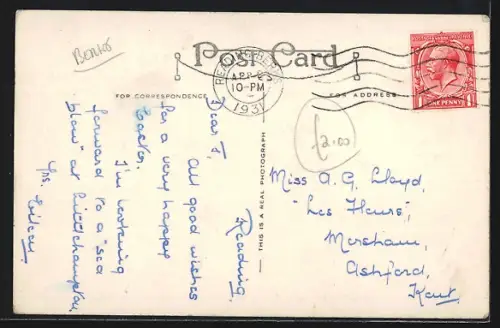 BERKS
Post Card
READING BERKS
APR
10-PM
1931
POSTAGE REVENUE
ONE PENNY
FOR CORRESPONDENCE
FOR ADDRESS
£2.00
THIS IS A REAL PHOTOGRAPH
Reading,
Dear J,
All good wishes
for a very happy
Easter.
I'm looking
forward to a "sea
blow" at Littlehampton
Yrs.
Miss A. G. Lloyd,
"Les Fleurs",
Mersham,
Ashford,
Kent